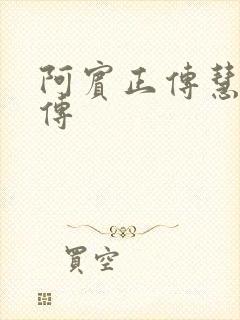 阿賓正傳慧
傳
買空